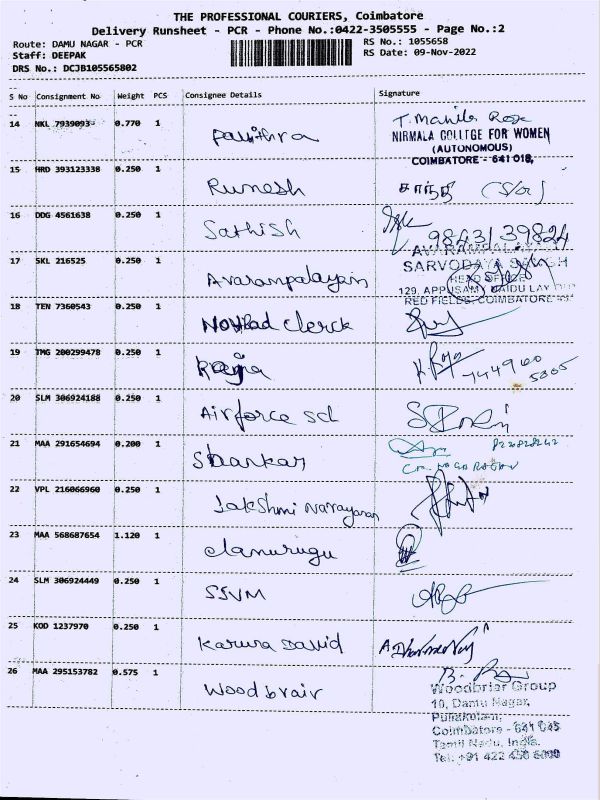 THE PROFESSIONAL COURIERS, Coimbatore
Delivery Runsheet - PCR - Phone No.:0422-3505555 - Page No.:2
Route: DAMU NAGAR - PCR
RS No.: 1055658
Staff: DEEPAK
RS Date: 09-Nov-2022
DRS No.: DCJB105565802
S No Consignment No Weight PCS Consignee Details Signature
14 NKL 7939093 0.770 1 Pavithra T. Manila Rose
NIRMALA COLLEGE FOR WOMEN
(AUTONOMOUS)
COIMBATORE - 641 018,
15 HRD 393123338 0.250 1 Rumesh
16 DDG 4561638 0.250 1 Sathish
98431 39824
17 SKL 216525 0.250 1 Avarampalayam
AVARAMPALAYAM
SARVODAYA SANGH
HEAD OFFICE
129, APPUSAMY NAIDU LAY OUT
RED FIELDS, COIMBATORE
18 TEN 7360543 0.250 1 clerck
19 TMG 200299478 0.250 1 Raja
20 SLM 306924188 0.250 1 Airforce scl
21 MAA 291654694 0.200 1 Shankar
22 VPL 216066960 0.250 1 Lakshmi Narayanan
23 MAA 568687654 1.120 1 elamurugu
24 SLM 306924449 0.250 1 SSVM
25 KOD 1237970 0.250 1 Karuna David
26 MAA 295153782 0.575 1 Woodbrair
Woodbriar Group
10, Damu Nagar,
Puliakulam,
Coimbatore - 641 045
Tamil Nadu, India.
Tel: +91 422 430 6000